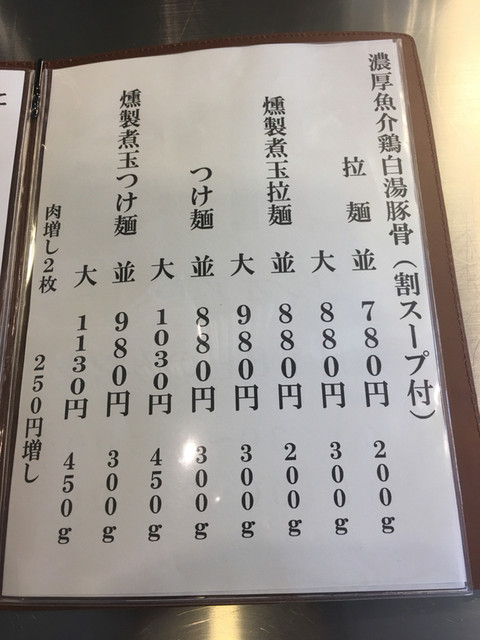 濃厚魚介鶏白湯豚骨（割スープ付）
拉麺 並 780円 200g
大 880円 300g
燻製煮玉拉麺 並 880円 200g
大 980円 300g
つけ麺 並 880円 300g
大 1030円 450g
燻製煮玉つけ麺 並 980円 300g
大 1130円 450g
肉増し2枚 250円増し